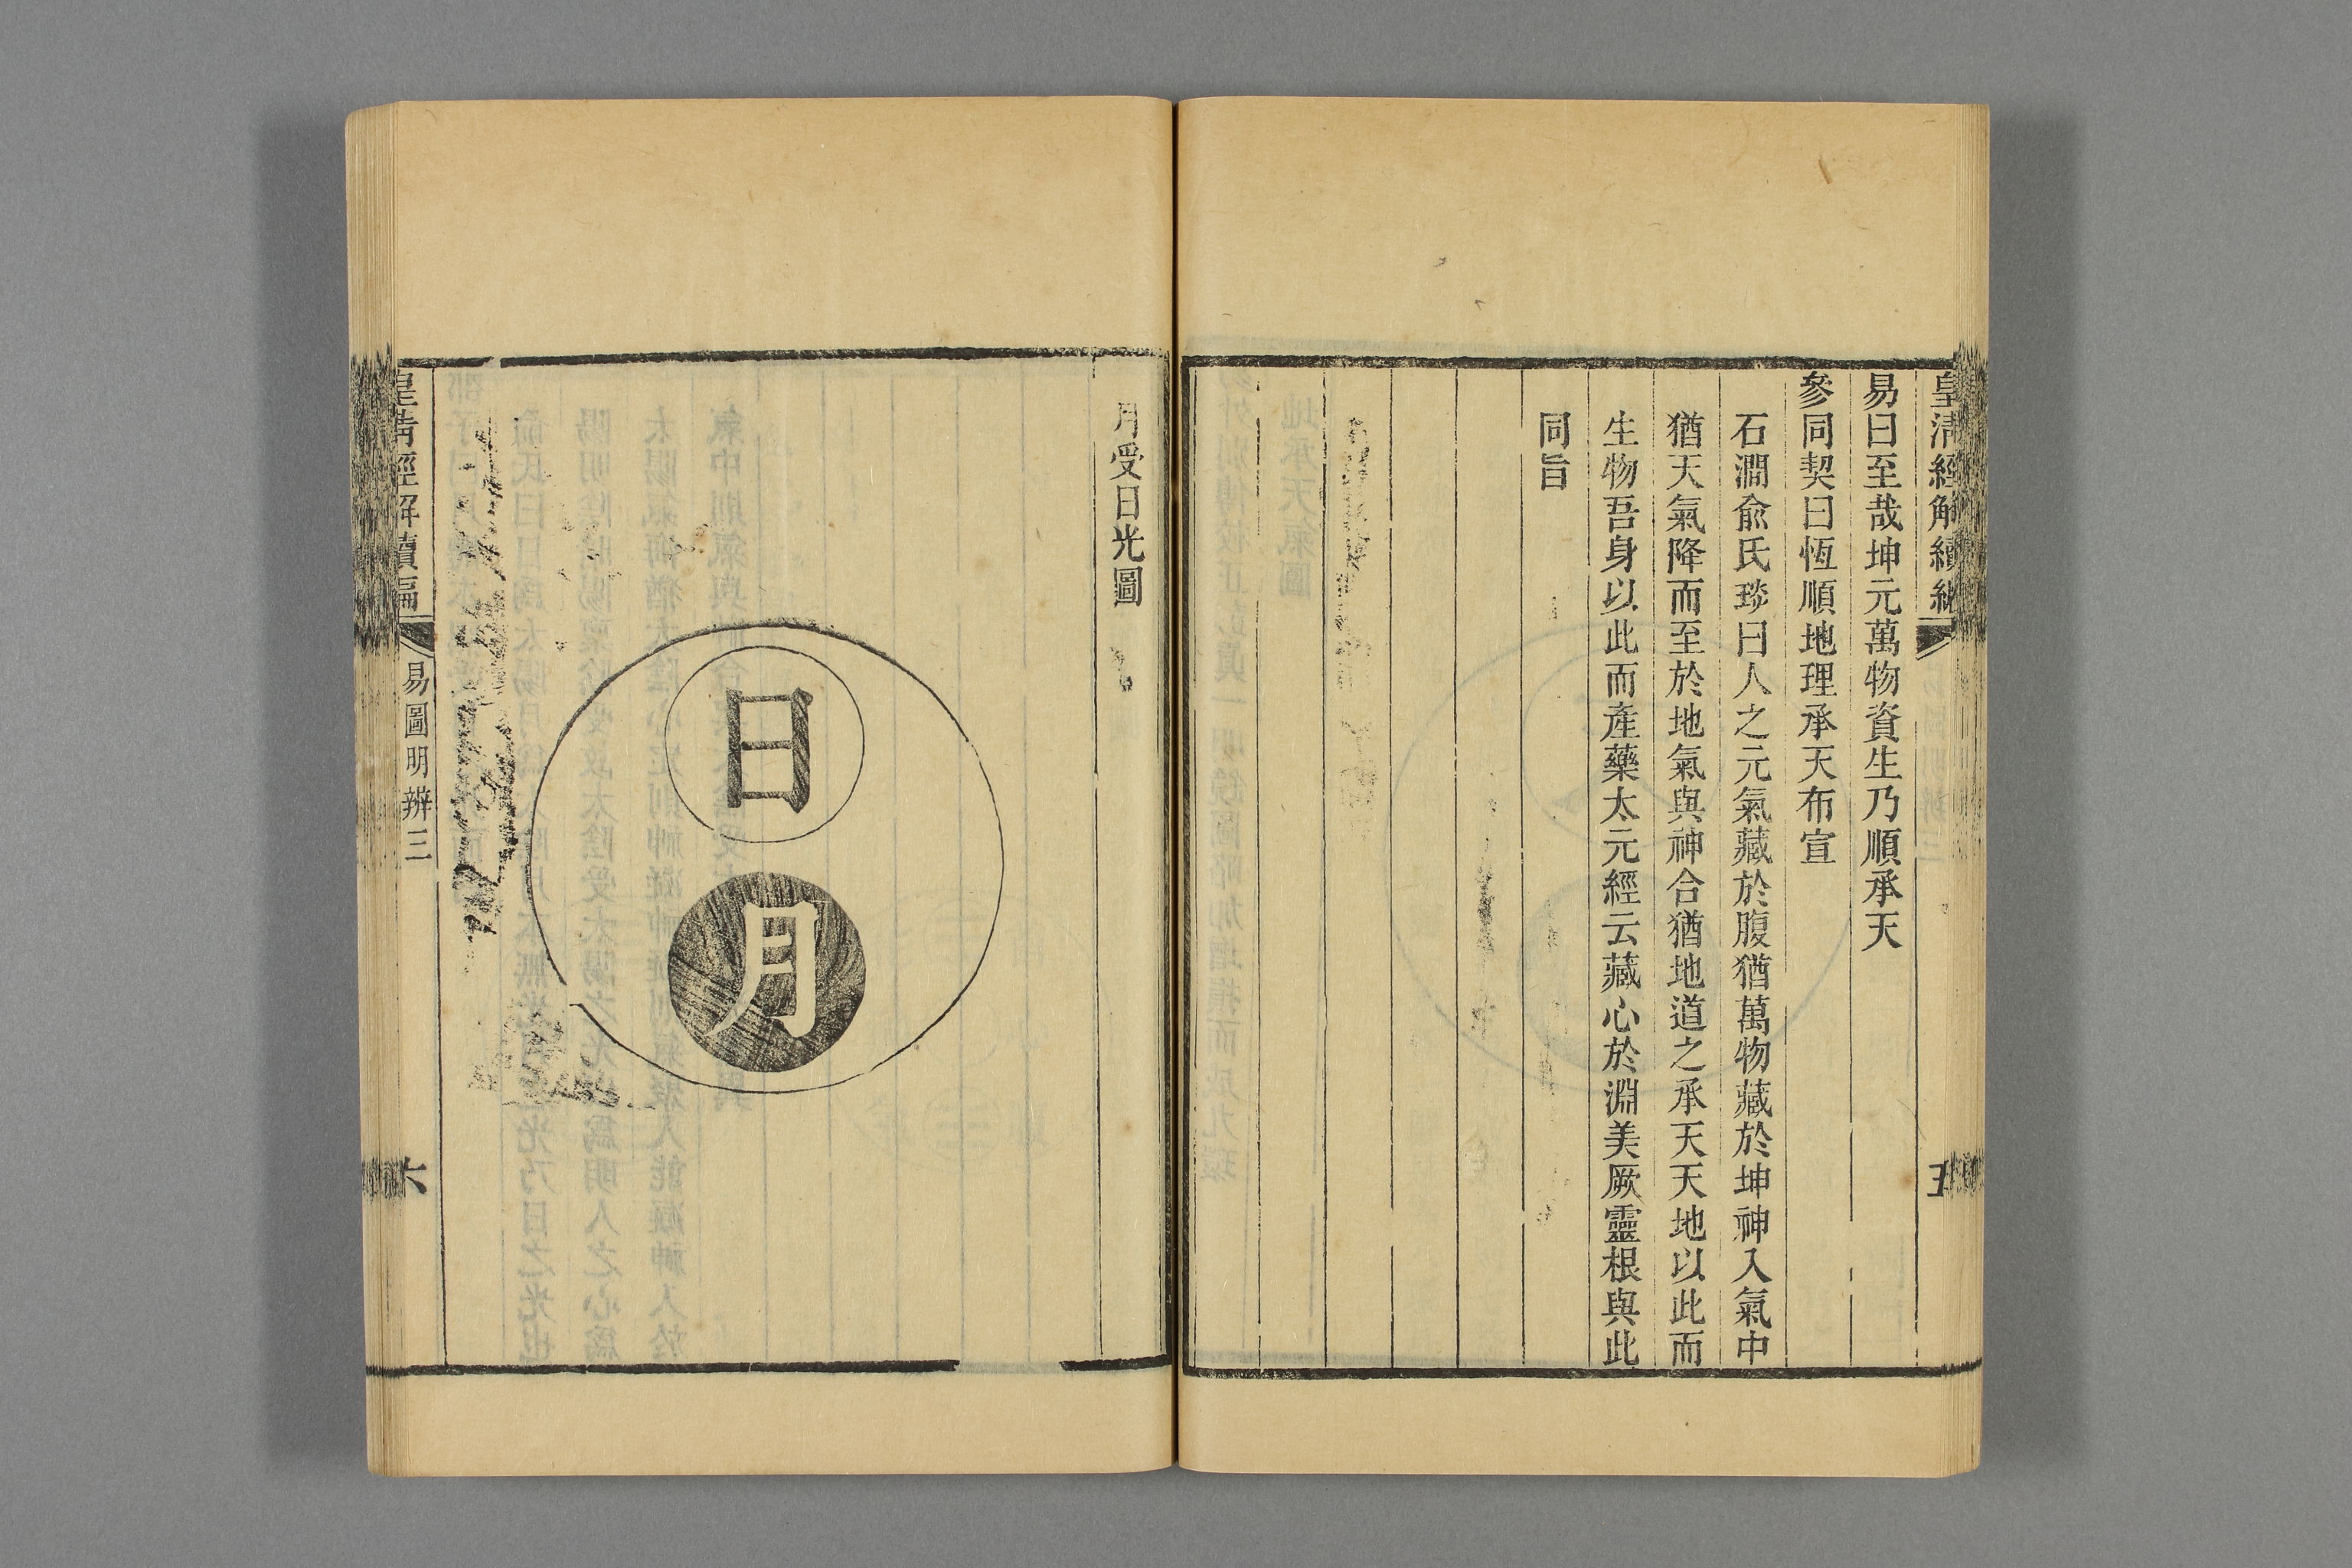 皇清經解續編
易曰至哉坤元萬物資生乃順承天
參同契曰恆順地理承天布宣
石澗俞氏琰曰人之元氣藏於腹猶萬物藏於坤神入氣中
猶天氣降而至於地氣與神合猶地道之承天天地以此而
生物吾身以此而產藥太元經云藏心於淵美厥靈根與此
同旨
月受日光圖
日
月
皇清經解續編
易圖明辨三
六